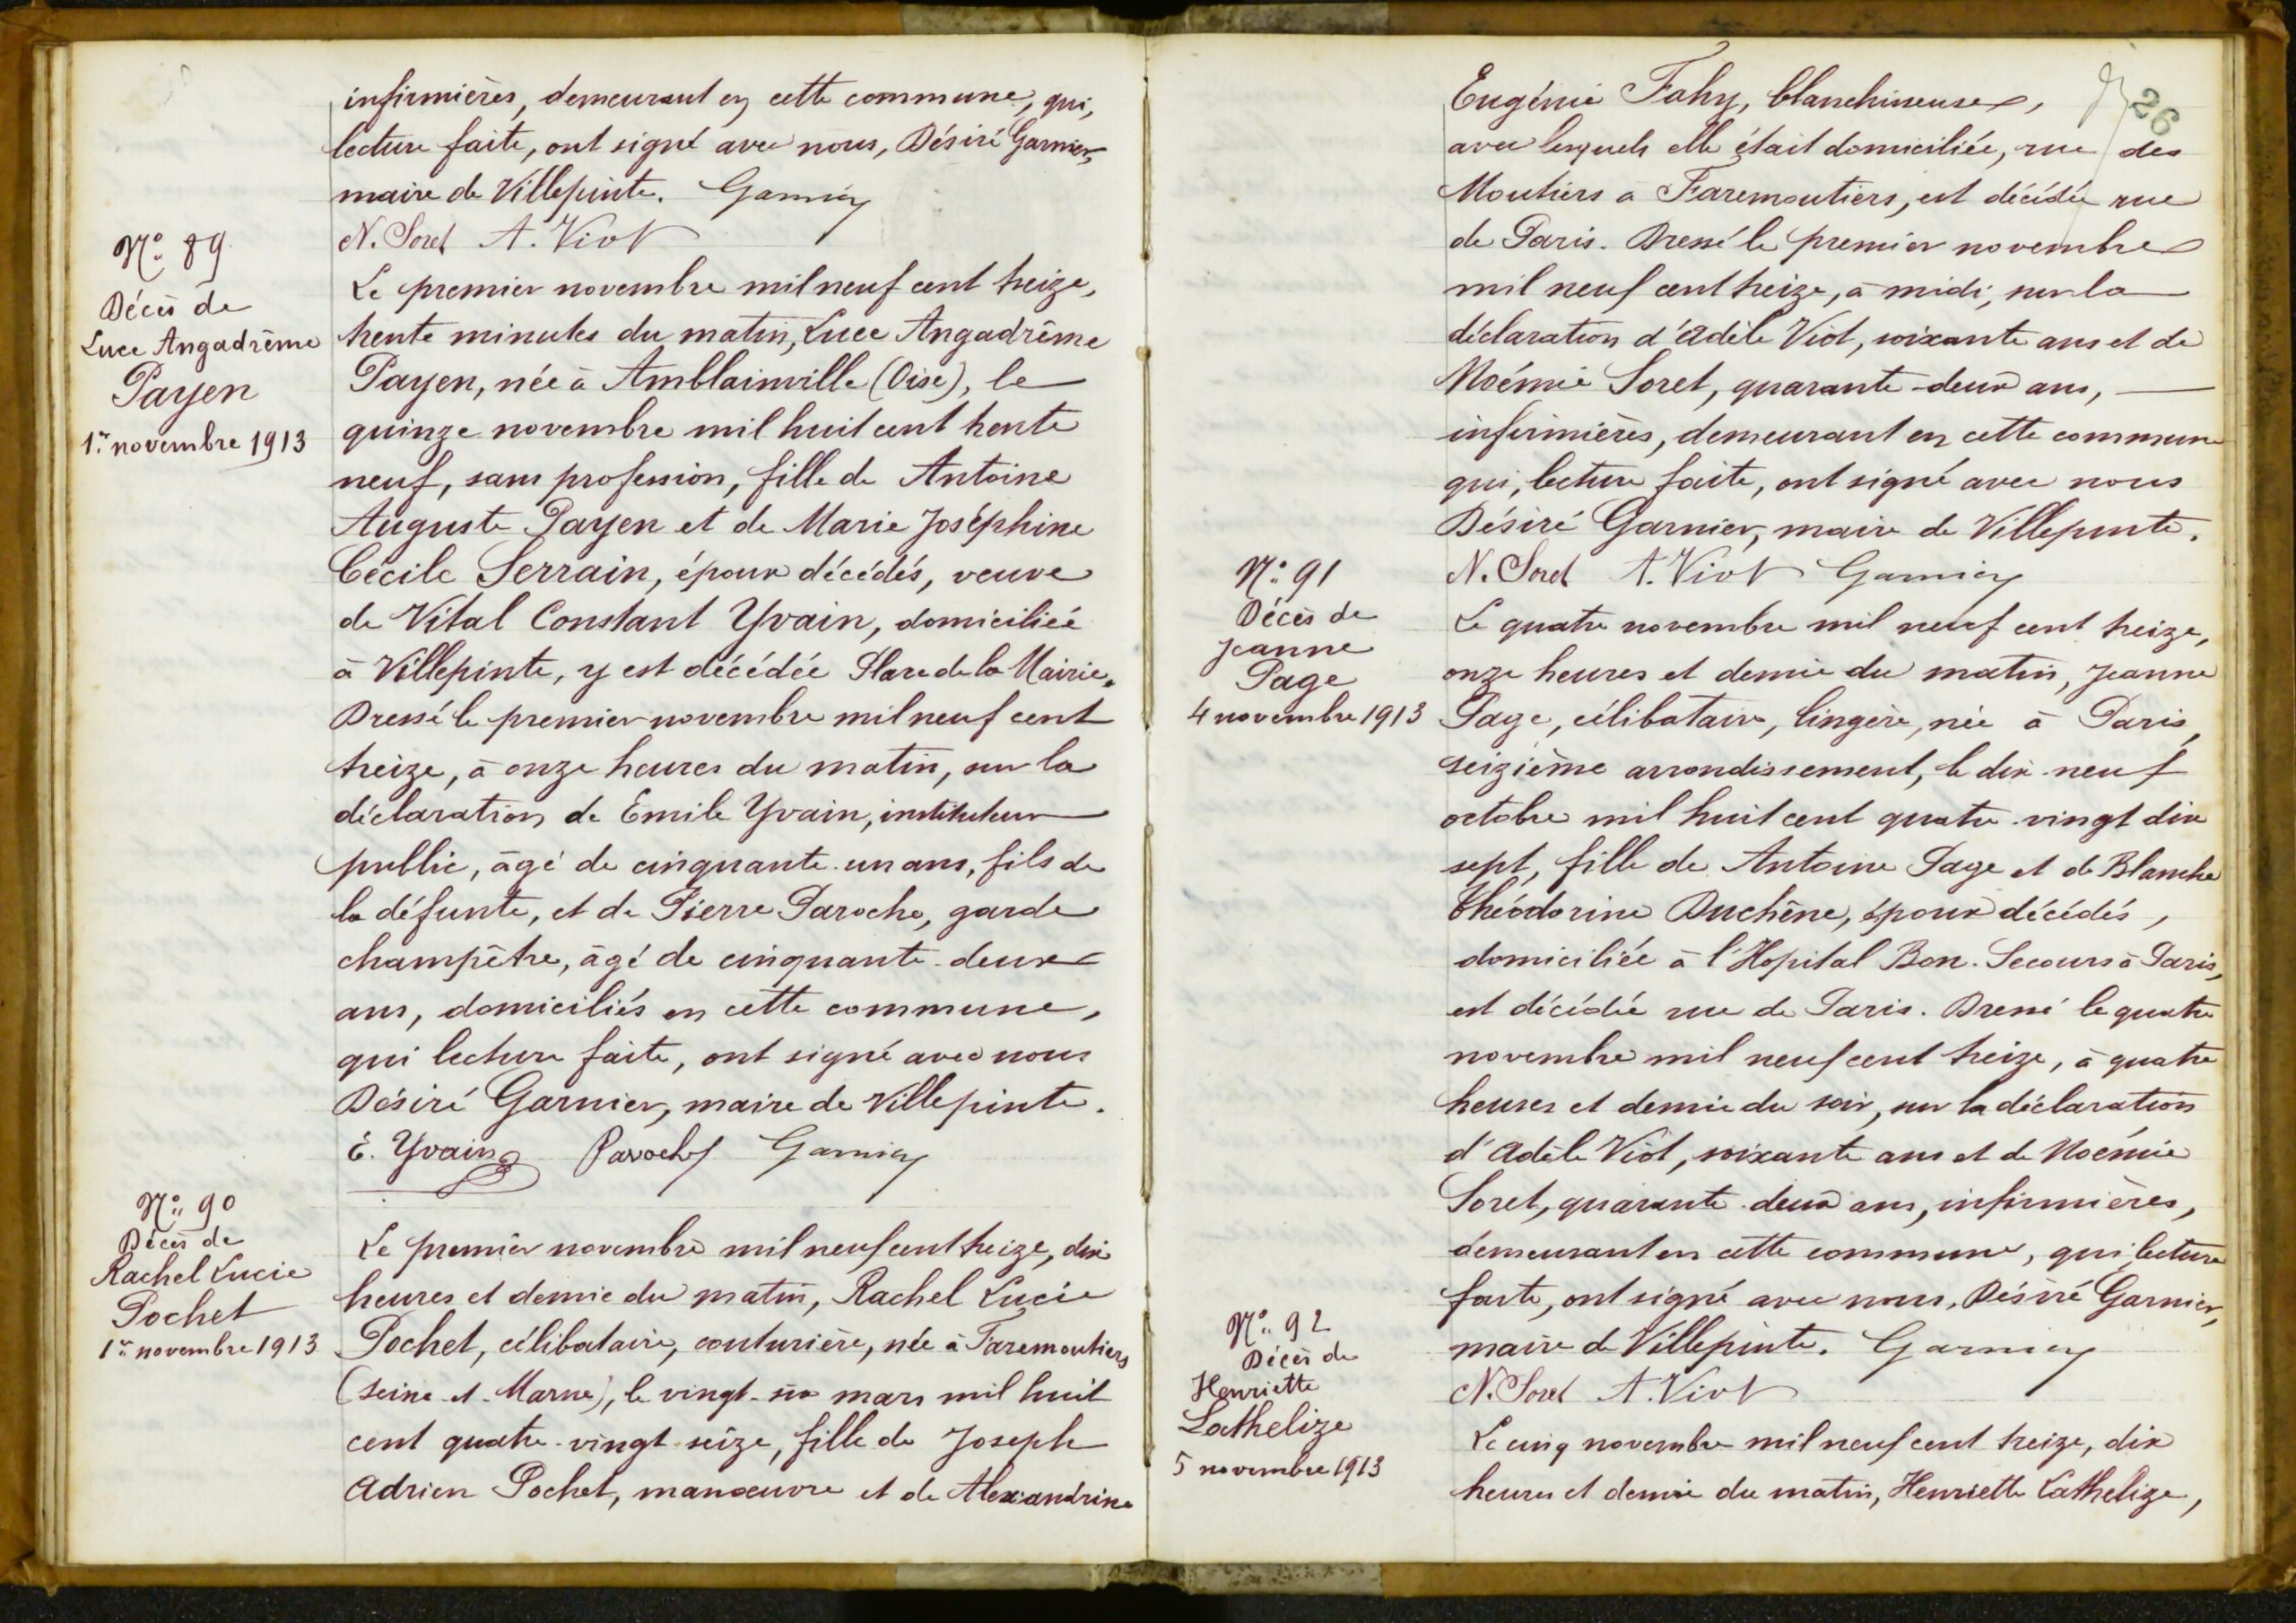 infirmières, demeurant en cette commune, qui,
lecture faite, ont signé avec nous, Désiré Garnier,
maire de Villepinte. Garnier
N. Soret A. Viot
N° 89
Décès de
Luce Angadrème
Payen
1er novembre 1913
Le premier novembre mil neuf cent treize,
trente minutes du matin, Luce Angadrême
Payen, née à Amblainville (Oise), le
quinze novembre mil huit cent trente
neuf, sans profession, fille de Antoine
Auguste Payen et de Marie Joséphine
Cécile Serrain, époux décédés, veuve
de Vital Constant Yvain, domiciliée
à Villepinte, y est décédée Place de la Mairie.
Dressé le premier novembre mil neuf cent
treize, à onze heures du matin, sur la
déclaration de Emile Yvain, instituteur
public, âgé de cinquante-un ans, fils de
la défunte, et de Pierre Paroche, garde
champêtre, âgé de cinquante-deux
ans, domiciliés en cette commune,
qui lecture faite, ont signé avec nous
Désiré Garnier, maire de Villepinte.
E. Yvain Paroche Garnier
N° 90
Décès de
Rachel Lucie
Pochet
1er novembre 1913
Le premier novembre mil neuf cent treize, dix
heures et demie du matin, Rachel Lucie
Pochet, célibataire, couturière, née à Faremoutiers
(Seine-et-Marne), le vingt-six mars mil huit
cent quatre-vingt-seize, fille de Joseph
Adrien Pochet, manœuvre et de Alexandrine
26
Eugénie Fahy, blanchisseuse,
avec lesquels elle était domiciliée, rue des
Moutiers à Faremoutiers, est décédée rue
de Paris. Dressé le premier novembre
mil neuf cent treize, à midi, sur la
déclaration d'Adèle Viot, soixante ans et de
Noémie Soret, quarante-deux ans,
infirmières, demeurant en cette commune
qui, lecture faite, ont signé avec nous
Désiré Garnier, maire de Villepinte.
N. Soret A. Viot Garnier
N° 91
Décès de
Jeanne
Page
4 novembre 1913
Le quatre novembre mil neuf cent treize,
onze heures et demie du matin, Jeanne
Page, célibataire, lingère, née à Paris,
seizième arrondissement, le dix-neuf
octobre mil huit cent quatre-vingt dix
sept, fille de Antoine Page et de Blanche
Théodorine Duchêne, époux décédés,
domiciliée à l'Hopital Bon-Secours à Paris,
est décédée rue de Paris. Dressé le quatre
novembre mil neuf cent treize, à quatre
heures et demie du soir, sur la déclaration
d'Adèle Viot, soixante ans et de Noémie
Soret, quarante-deux ans, infirmières,
demeurant en cette commune, qui, lecture
faite, ont signé avec nous, Désiré Garnier,
maire de Villepinte. Garnier
N. Soret A. Viot
N° 92
Décès de
Henriette
Lathelize
5 novembre 1913
Le cinq novembre mil neuf cent treize, dix
heures et demie du matin, Henriette Lathelize,